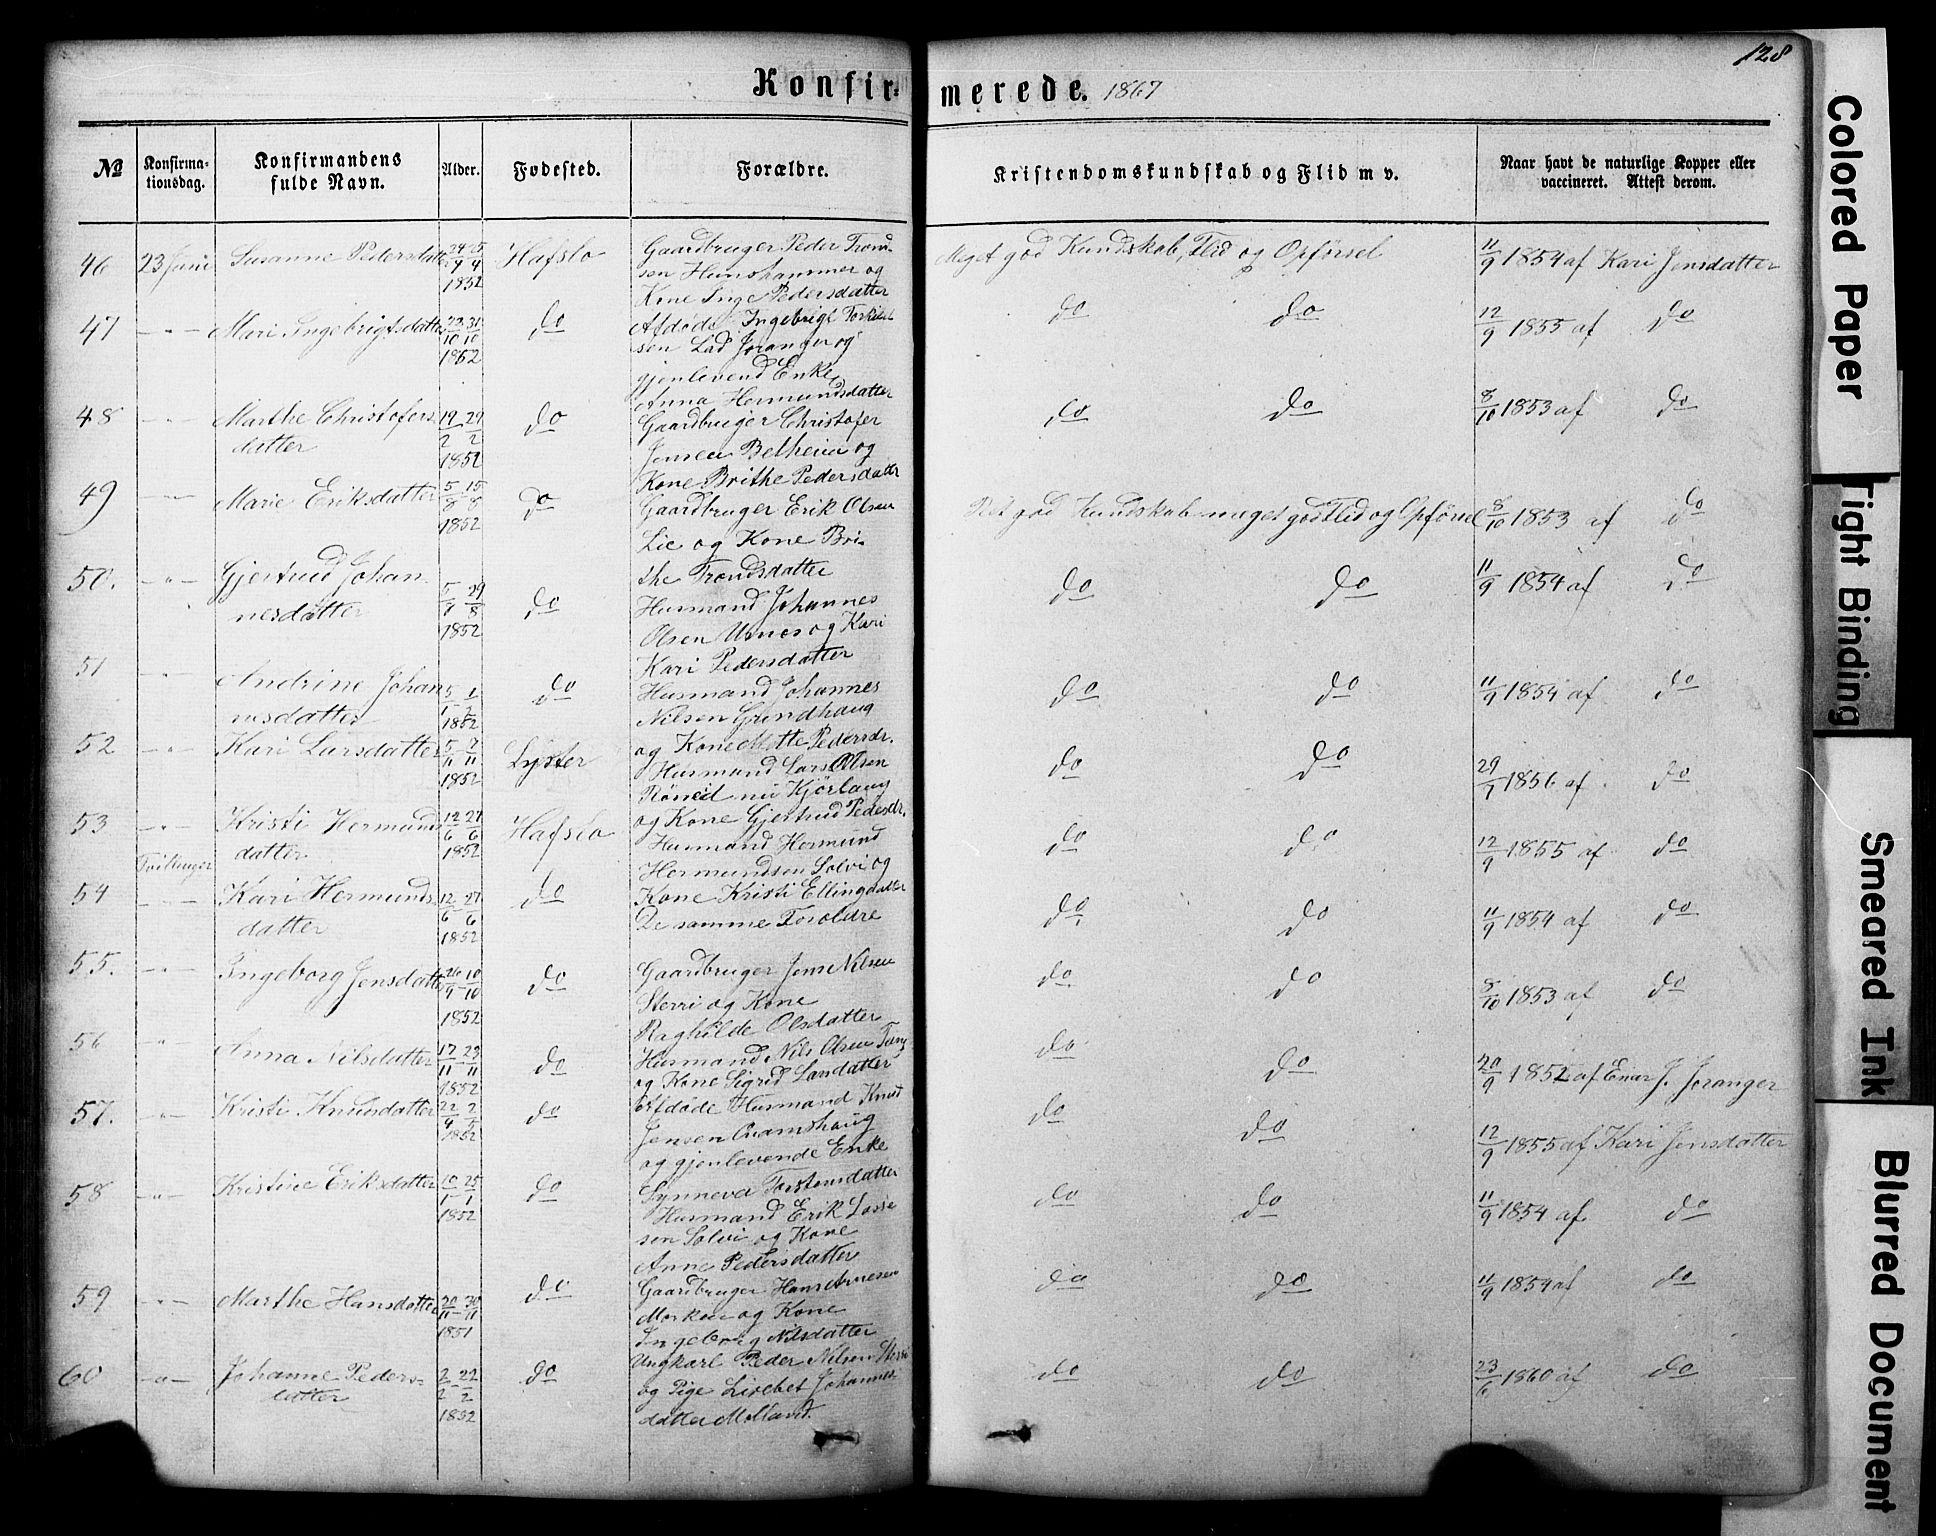 128
Konfirmerede. 1867
No
Konfirmationsdag.
Konfirmandens fulde Navn.
Alder.
Fødested.
Forældre.
Kristendomskundskab og Flid m v.
Naar havt de naturlige Kopper eller vaccineret. Attest derom.
46 23 Juni Susanne Pedersdatter 1852 Hafslo
Gaardbruger Peder Trond-
sen Hunshammer og
Kone Inge Pedersdatter
Meget god Kundskab, Flid og Opførsel 11/9 1854 af Kari Jensdatter
47 -"- Mari Ingebrigtsdatter 23/10 31/10 1852 do
Afdøde Ingebrigt Torkild
sen Lad Joranger og
gjenlevend Enke
Anna Hermundsdatter
do do 12/9 1855 af do
48 -"- Marthe Christofers
datter 19/2 29/2 1852 do
Gaardbruger Christofer
Jensen Betheim og
Kone Brithe Pedersdattr
do do 8/10 1853 af do
49 -"- Marie Eriksdatter 5/8 15/8 1852 do
Gaardbruger Erik Olsen
Lie og Kone Bri-
the Trondsdatter
god Kundskab meget god Flid og Opførsel 8/10 1853 af do
50. -"- Gjertrud Johan-
nesdatter 29/8 1852 do
Husmand Johannes
Olsen Urnes og Kari
Kari Pedersdatter
do do 11/9 1854 af do
51 -"- Andrine Johan
nesdatter 1852 do
Husmand Johannes
Nilsen Grindhaug
og Kone Mette Pedersdr.
do do 11/9 1854 af do
52 -"- Kari Larsdatter 5/11 7/11 1852 Lyster
Husmand Lars Olsen
Røneid nu Kjørlaug
og Kone Gjertrud Pedersdr.
do do 29/7 1856 af do
53 -"- Kristi Hermunds
datter 12/6 27/6 1852 Hafslo
Husmand Hermund
Hermundsen Solvi og
Kone Kristi Ellingdatter
do do 12/9 1855 af do
Tvillinger
54 -"- Kari Hermunds
datter 12/6 27/6 1852 do
De samme Foroldre
do do 11/9 1854 af do
55. -"- Ingeborg Jensdatter 26/9 10/10 1852 do
Gaardbruger Jens Nilsen
Sterri og Kone
Raghilde Olsdatter
do do 8/10 1853 af do
56 " Anna Nilsdatter 17/11 23/11 1852 do
Husmand Nils Olsen
og Kone Sigrid Larsdatter
do do 20/9 1852 af Enar J. Joranger
57. -"- Kristi Knudsdatter 22/4 2/5 1852 do
Afdøde Husmand Knud
Jensen Qvamshaug
og gjenlevende Enke
Synneva Torstensdatter
do do 12/9 1855 af Kari Jensdatter
58 -"- Kristine Eriksdatter 10/1 25/1 1852 do
Husmand Erik Lasse
sen Solvi og Kone
Anne Pedersdatter
do do 11/9 1854 af do
59 -"- Marthe Hansdatter 20/11 30/11 1851 do
Gaardbruger Hans Arnesen
Morken og Kone
Ingeborg Nilsdatter
do do 11/9 1854 af do
60 -"- Johanne Peders-
datter 2/2 22/2 1852 do
Ungkarl Peder Nilsen Sterri
og Pige Lisebet Johannes
datter Molland.
do do 23/6 1860 af do
Colored Paper
Tight Binding
Smeared Ink
Blurred Document